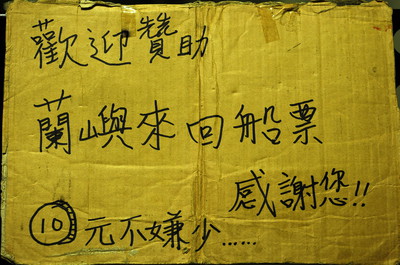 歡迎贊助
蘭嶼來回船票
感謝您!!
⑩元不嫌少......